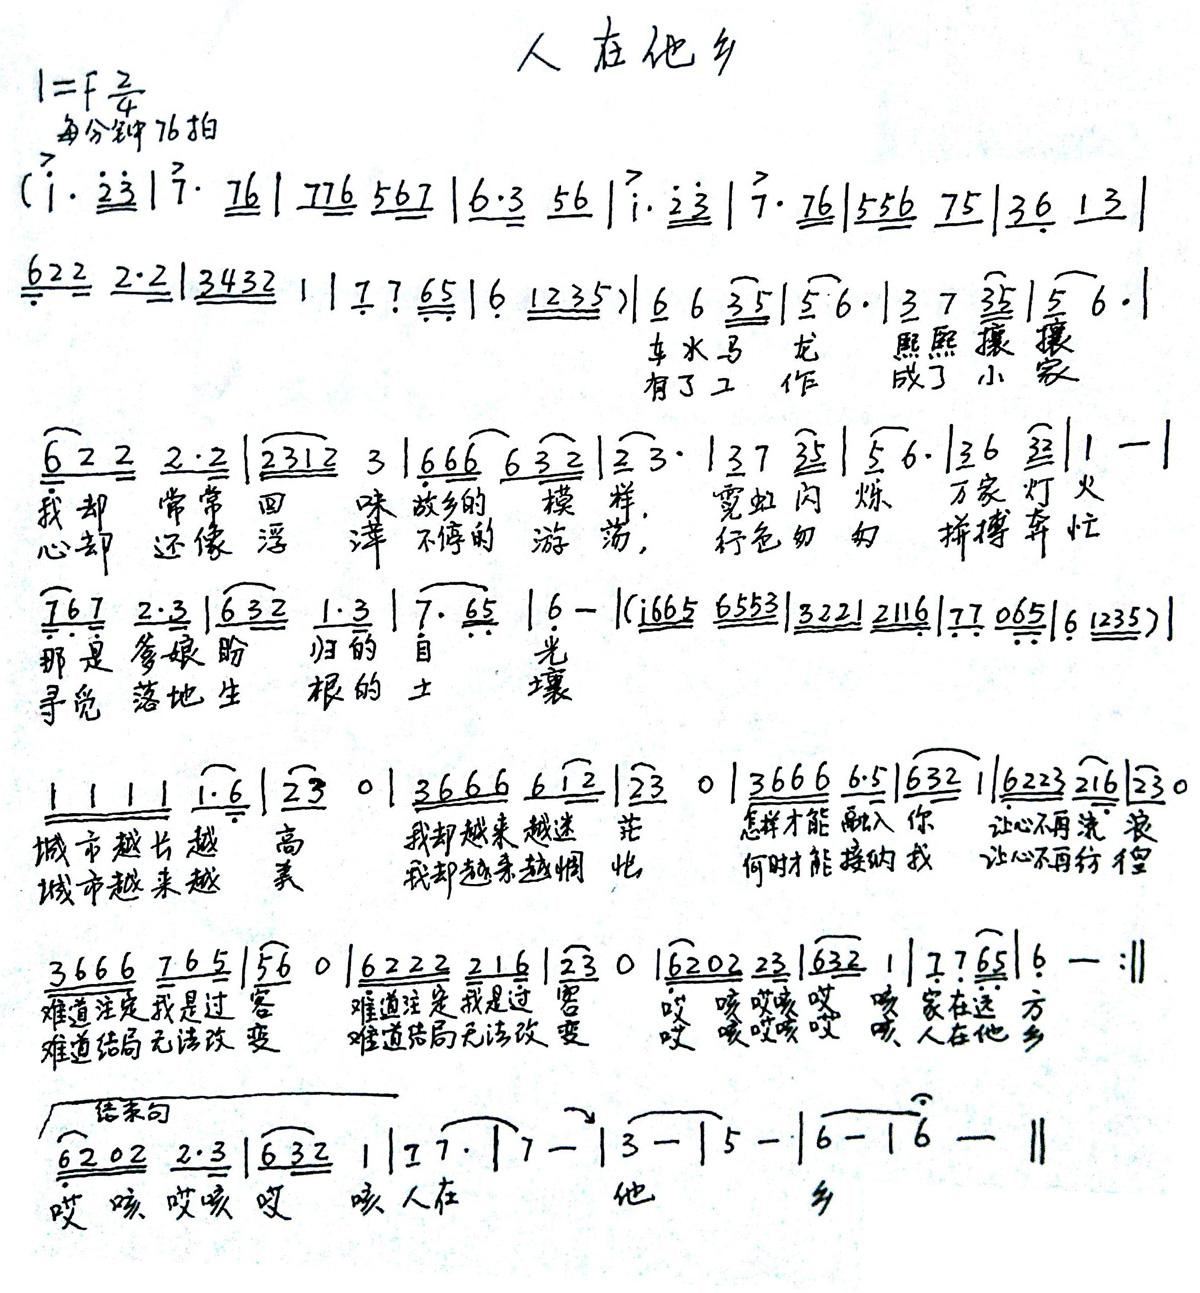 人在他乡
1=F 2/4
每分钟76拍
(i· 23|7· 76|776 567|6·3 56|i· 23|7· 76|556 75|36 13|
622 2·2|3432 1|77 65|6 1235)|6 6 35|5 6·|3 7 35|5 6·|
车水马 龙 熙熙攘 攘
有了工 作 成了小 家
622 2·2|2312 3|666 632|2 3·|37 35|5 6·|36 32|1 —|
我却 常常 回 味 故乡的 模 样, 霓虹闪 烁 万家灯火
心却 还像 浮 萍 不停的 游 荡, 行色匆 匆 拼搏奔忙
767 2·3|632 1·3|7· 65|6 —|(i665 6553|3221 2116|77 065|6 1235)|
那是 爹娘 盼 归的 目 光
寻觅 落地 生 根的 土 壤
1 1 1 1 1·6|23 0|3666 612|23 0|3666 6·5|632 1|6223 216|23 0
城市越长越 高 我却越来越迷 茫 怎样才能融入你 让心不再流浪
城市越来越 美 我却越来越惆 怅 何时才能接纳我 让心不再彷徨
3666 765|56 0|6222 216|23 0|6202 23|632 1|77 65|6 — :||
难道注定我是过 客 难道注定我是过 客 哎 咳哎咳 哎 咳 家在远 方
难道结局无法改 变 难道结局无法改 变 哎 咳哎咳 哎 咳 人在他 乡
结束句
6202 2·3|632 1|1 7·|7 —|3 —|5 —|6 —|6 — ||
哎 咳 哎咳 哎 咳 人在 他 乡